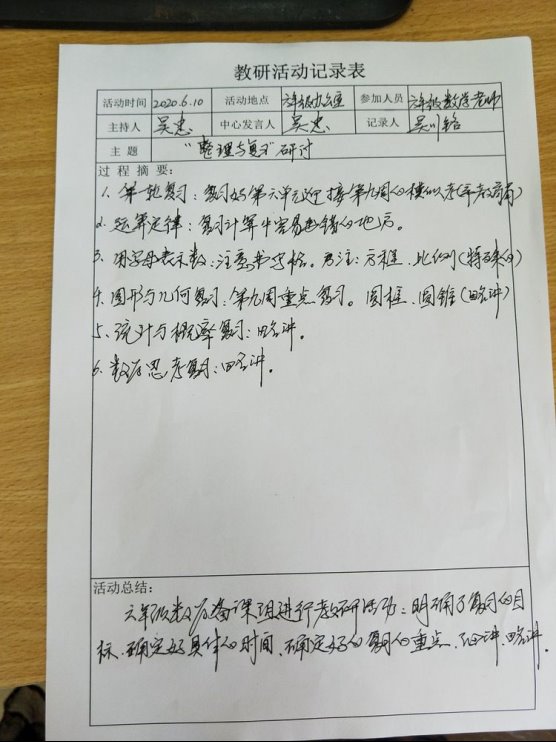 教研活动记录表
活动时间 2020.6.10 活动地点 六年级办公室 参加人员 六年级数学老师
主持人 吴忠 中心发言人 吴忠 记录人 吴
主题 “整理与复习”研讨
过程摘要：
1. 第一轮复习：复习好第六单元迎接第九周的模拟考(年教育局)
2. 运算定律：复习计算中容易出错的地方。
3. 用字母表示数：注意书写格。另注：方程、比例(特殊的)
4. 图形与几何复习：第九周重点复习。圆柱、圆锥(略讲)
5. 统计与概率复习：略讲。
6. 数学思考复习：略讲。
活动总结：
六年级数学备课组进行教研活动：明确了复习的目
标、确定好具体的时间、确定好的复习的重点、细讲、略讲。